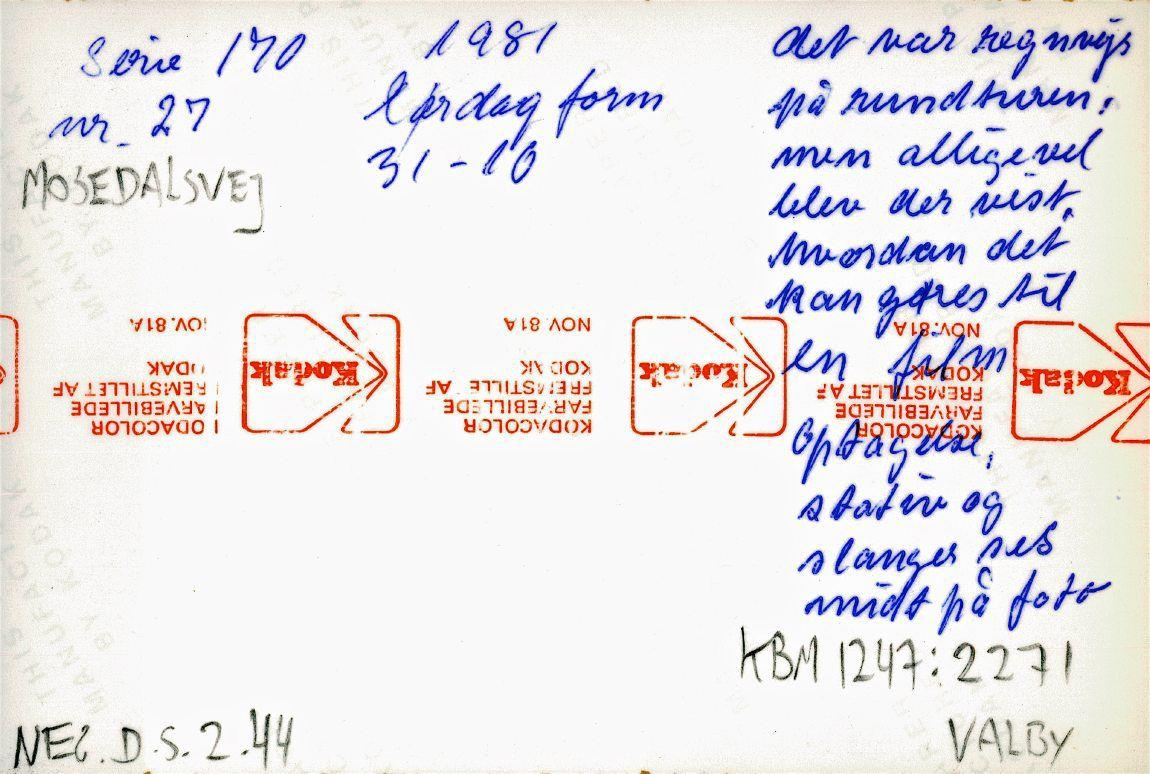 Serie 170
nr. 27
MOSEDALSVEJ
1981
Lørdag form
31-10
det var regnvejs
på rundturen,
men alligevel
blev der vist,
hvordan det
kan gøres til
en film
Optagelse,
stativ og
slanger ses
midt på foto
NOV.81A
KODAK
FREMSTILLET AF
FARVEBILLEDE
KODACOLOR
Kodak
NOV.81A
KODAK
FREMSTILLE AF
FARVEBILLEDE
KODACOLOR
Kodak
NOV.81A
KODAK
FREMSTILLET AF
FARVEBILLEDE
KODACOLOR
Kodak
KBM 1247:2271
VALBY
NEG. D.S. 2.44